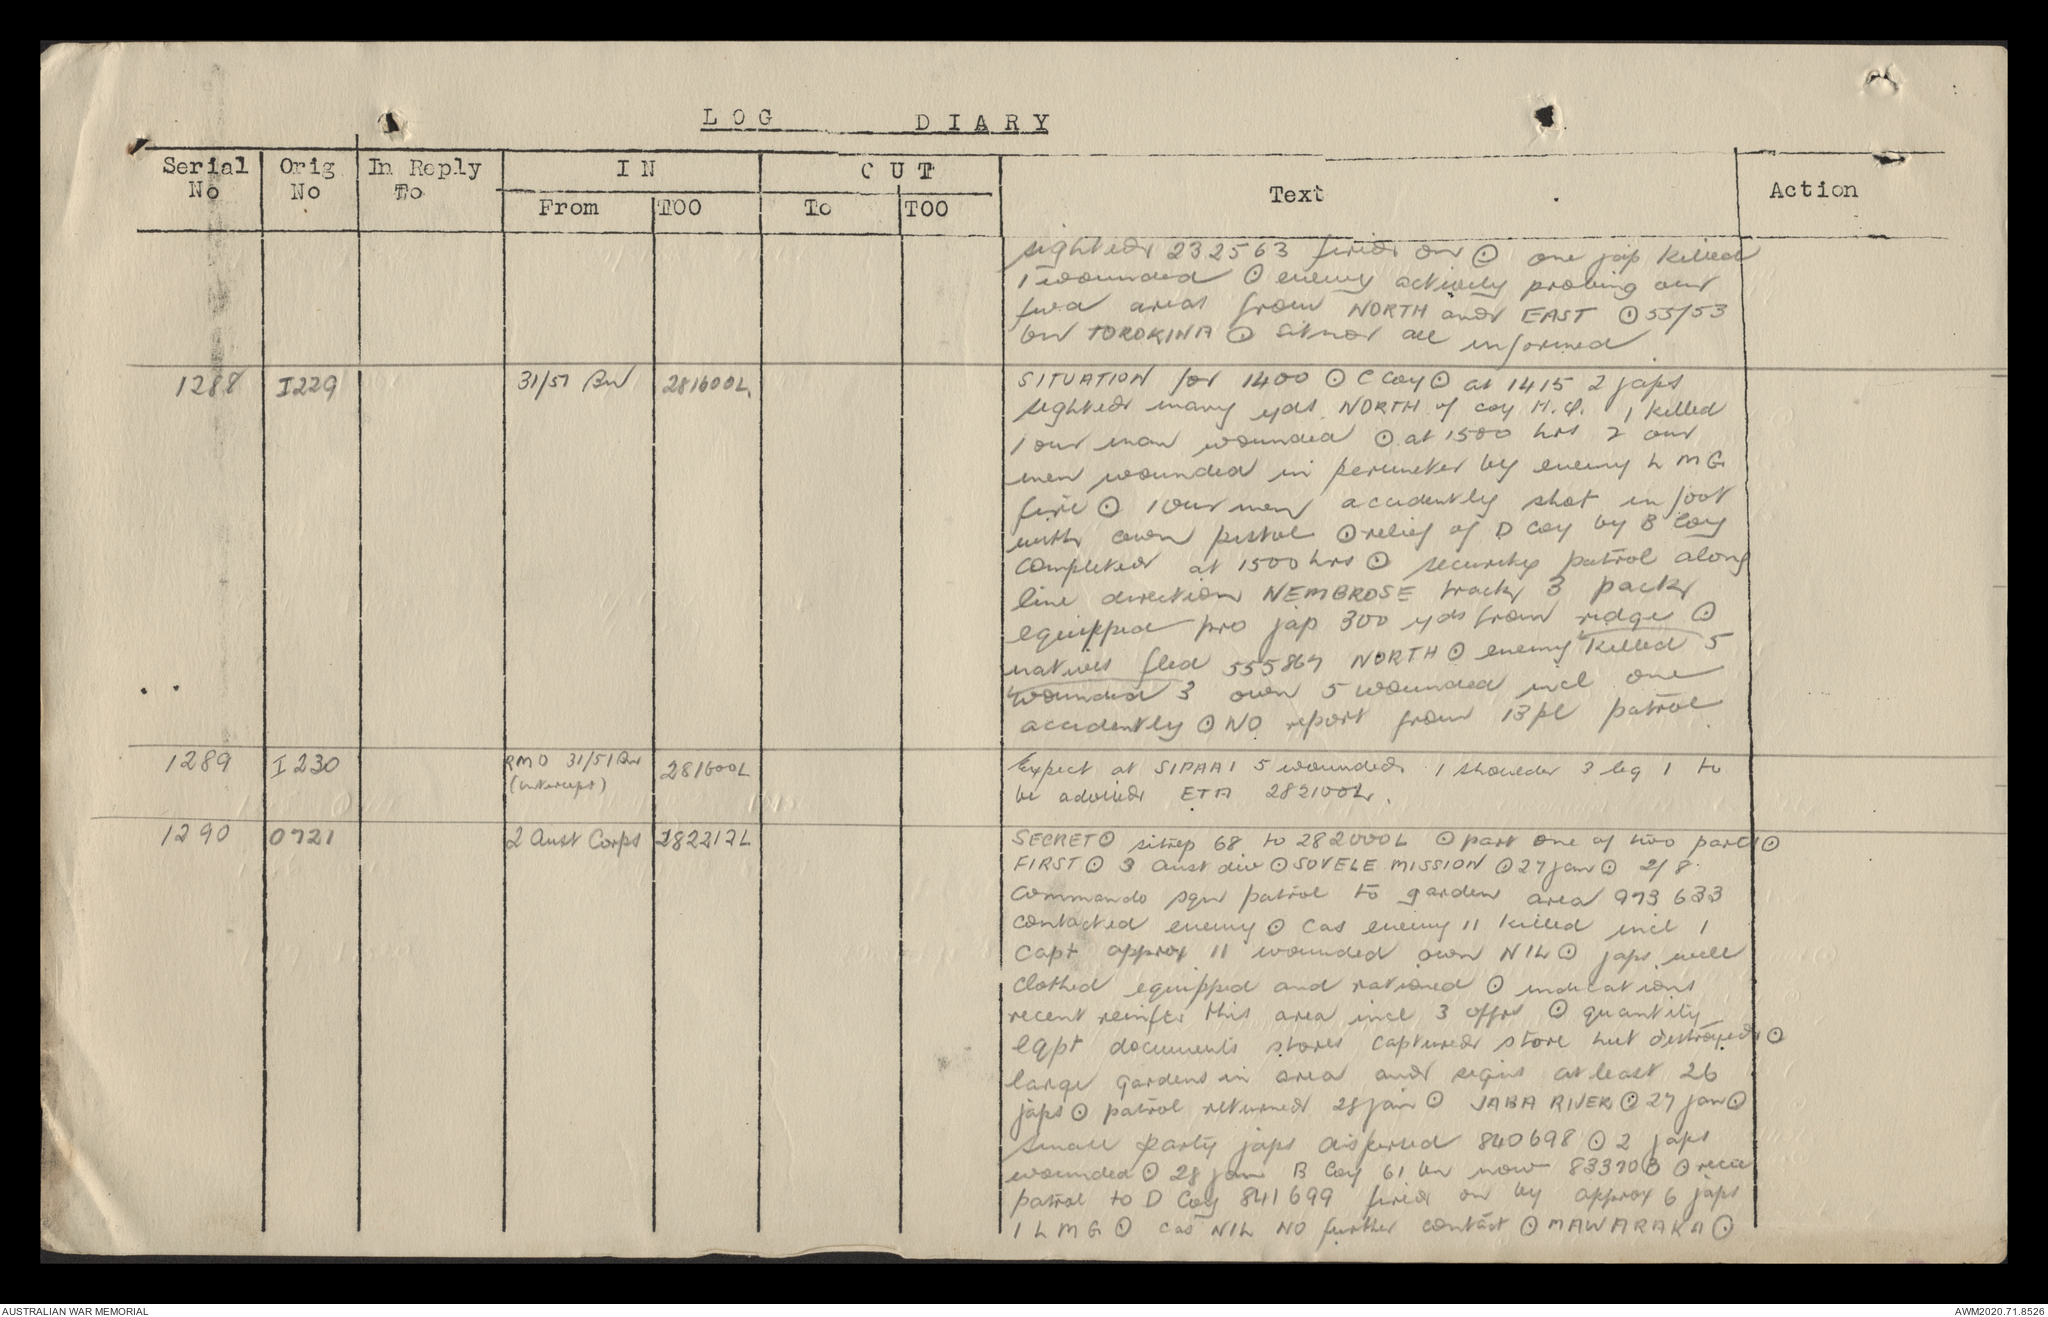 LOG DIARY
Serial No
Orig No
In Reply To
IN
From
TOO
OUT
To
TOO
Text
Action
sighted 232563 fired on ⊙ one jap killed
1 wounded ⊙ enemy actively probing our
fwd areas from NORTH and EAST ⊙ 53/53
bn TOROKINA ⊙ all informed
1288 I229 31/51 Bn 281600L
SITUATION for 1400 ⊙ C Coy ⊙ at 1415 2 japs
sighted many yds NORTH of coy H.Q. 1 killed
1 our man wounded ⊙ at 1500 hrs 2 our
men wounded in perimeter by enemy LMG
fire ⊙ 1 our men accidently shot in foot
with own pistol ⊙ relief of D Coy by B Coy
completed at 1500 hrs ⊙ security patrol along
line direction NEMBROSE track 3 pack
equipped pro jap 300 yds from ridge ⊙
natives fled 555867 NORTH ⊙ enemy killed 5
wounded 3 own 5 wounded incl one
accidently ⊙ NO report from 13 pl patrol
1289 I230 RMO 31/51 Bn 281600L
(intercept)
Expect at SIPAAI 5 wounded 1 shoulder 3 leg 1 to
be advised ETA 282100L.
1290 O721 2 Aust Corps 282212L
SECRET ⊙ sitrep 68 to 282000L ⊙ part one of two parts ⊙
FIRST ⊙ 3 Aust div ⊙ SOVELE MISSION ⊙ 27 jan ⊙ 2/8
commando sqn patrol to garden area 973633
contacted enemy ⊙ Cas enemy 11 killed incl 1
Capt approx 11 wounded own NIL ⊙ japs well
clothed equipped and rationed ⊙ indications
recent reinfts this area incl 3 offrs ⊙ quantity
eqpt documents stores captured store hut destroyed ⊙
large gardens in area and signs at least 26
japs ⊙ patrol returned 28 jan ⊙ JABA RIVER ⊙ 27 jan ⊙
small party japs dispersed 840698 ⊙ 2 japs
wounded ⊙ 28 jan B Coy 61 bn now 833703 ⊙ recce
patrol to D Coy 841699 fired on by approx 6 japs
1 LMG ⊙ cas NIL NO further contact ⊙ MAWARAKA ⊙
AUSTRALIAN WAR MEMORIAL
AWM2020.71.8526